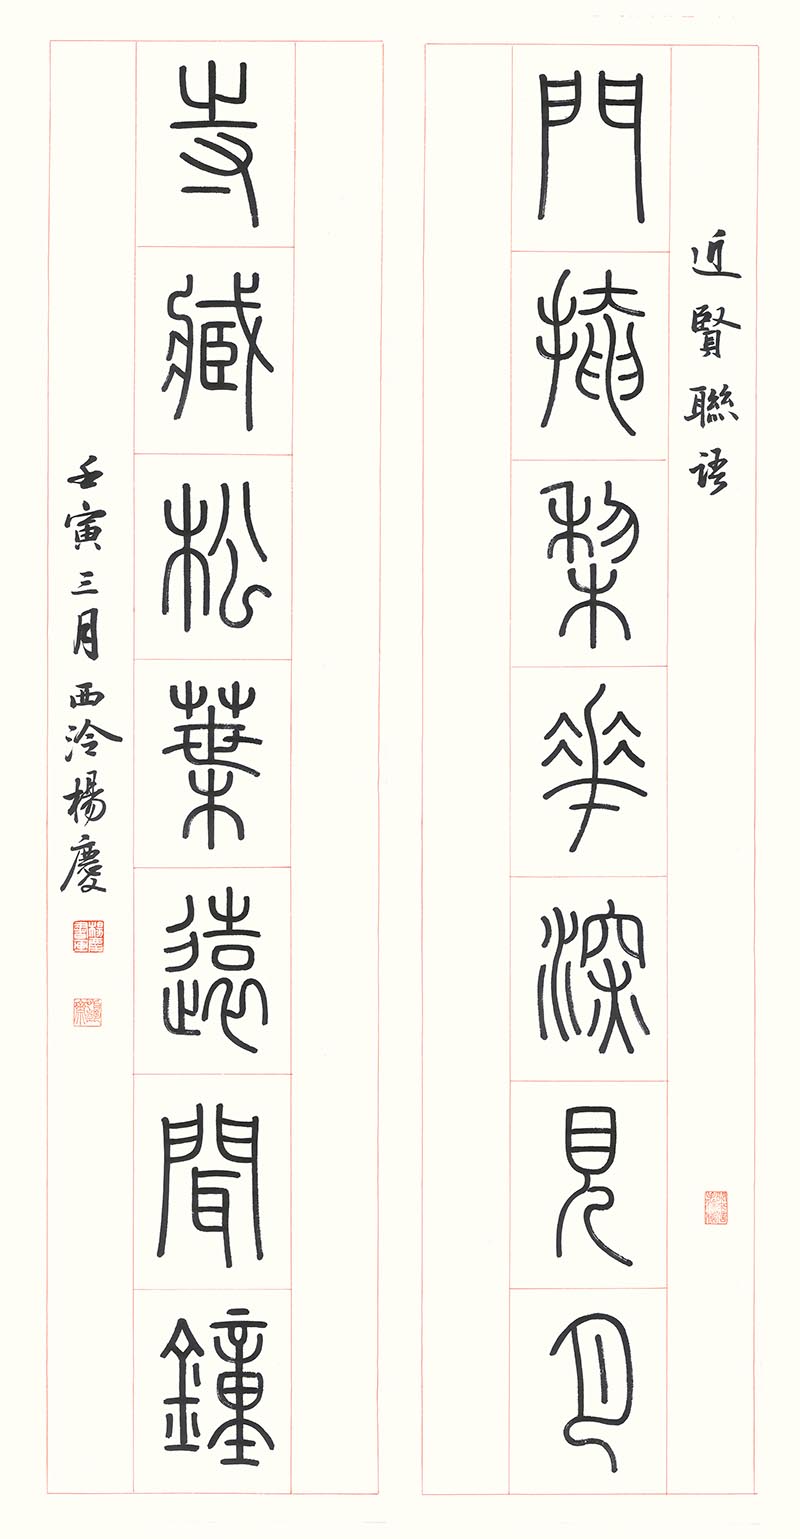 近賢聯語
門掩棃花深見月
寺藏松葉遠聞鐘
壬寅三月西泠楊慶